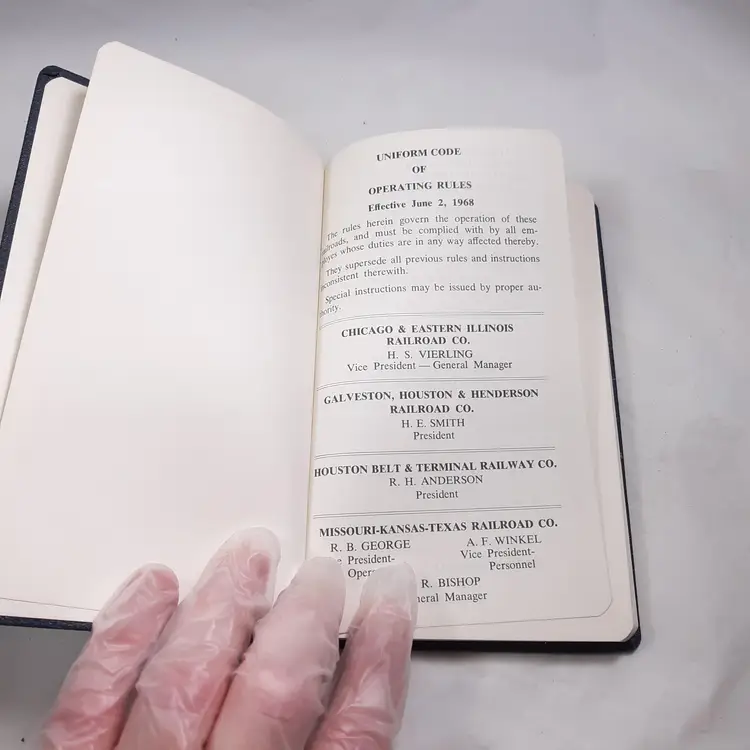 UNIFORM CODE
OF
OPERATING RULES
Effective June 2, 1968
The rules herein govern the operation of these
railroads, and must be complied with by all em-
ployes whose duties are in any way affected thereby.
They supersede all previous rules and instructions
inconsistent therewith.
Special instructions may be issued by proper au-
thority.
CHICAGO & EASTERN ILLINOIS
RAILROAD CO.
H. S. VIERLING
Vice President — General Manager
GALVESTON, HOUSTON & HENDERSON
RAILROAD CO.
H. E. SMITH
President
HOUSTON BELT & TERMINAL RAILWAY CO.
R. H. ANDERSON
President
MISSOURI-KANSAS-TEXAS RAILROAD CO.
R. B. GEORGE A. F. WINKEL
President- Vice President-
Personnel
R. BISHOP
Manager